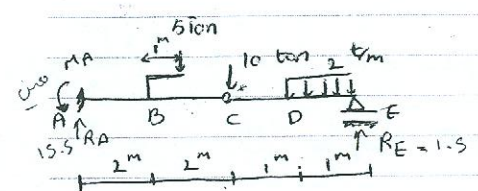 5 ton
1m
MA
10 ton
2 t/m
A
B
C
D
E
15.5
RA
RE = 1.5
2m 2m 1m 1m